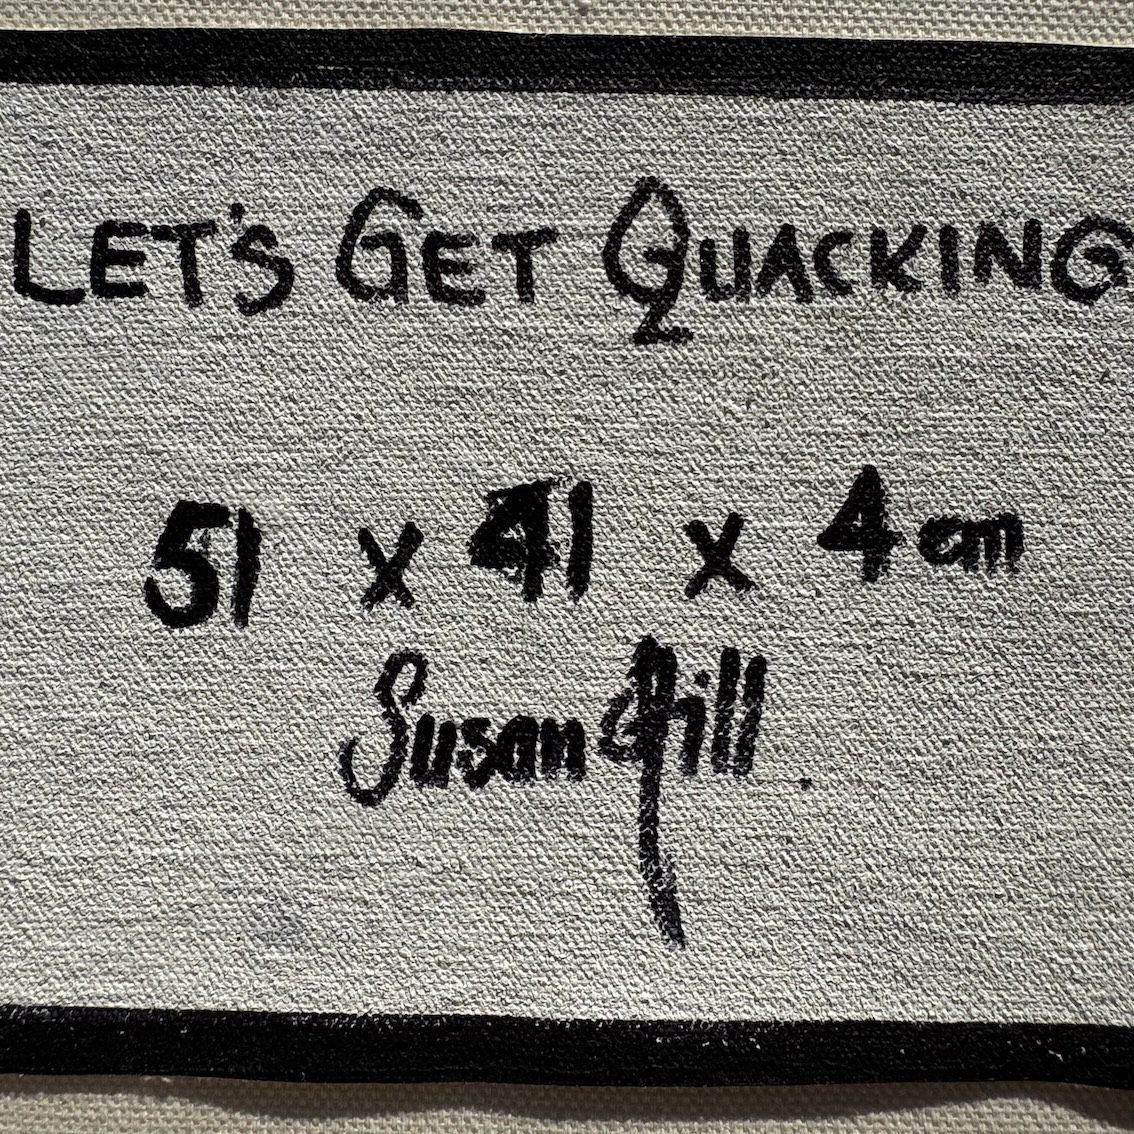 LET'S GET QUACKING
51 x 41 x 4 cm
Susan Gill.